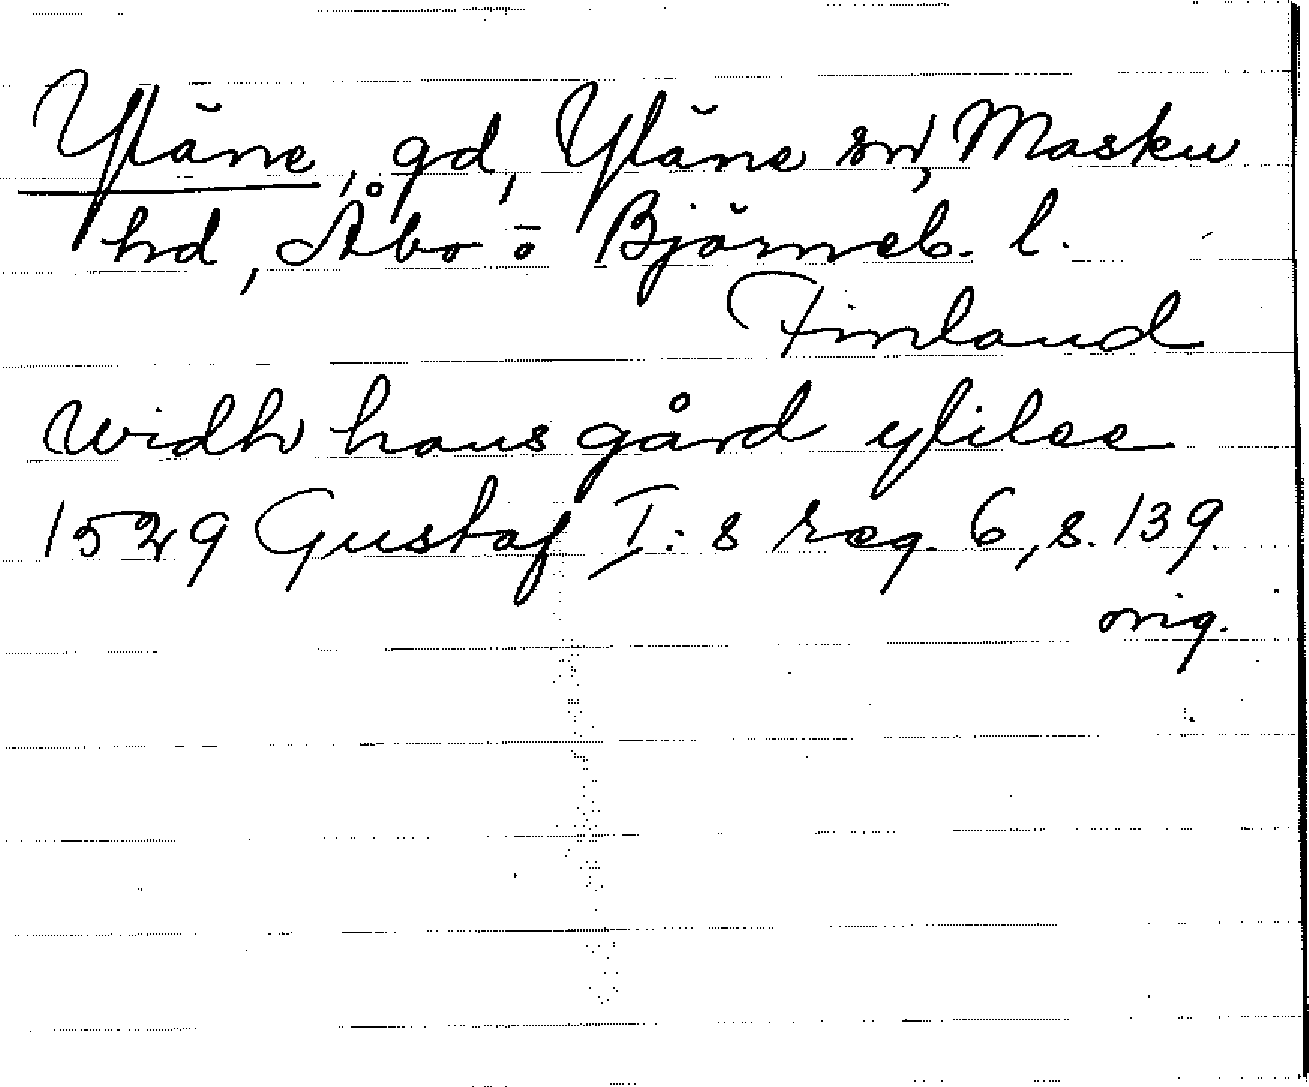 Yläne, gd, Yläne sn, Masku
hd, Åbo ö Björneb. l.
Finland
widh hans gård ylilee
1529 Gustaf I:s reg. 6, s. 139.
orig.